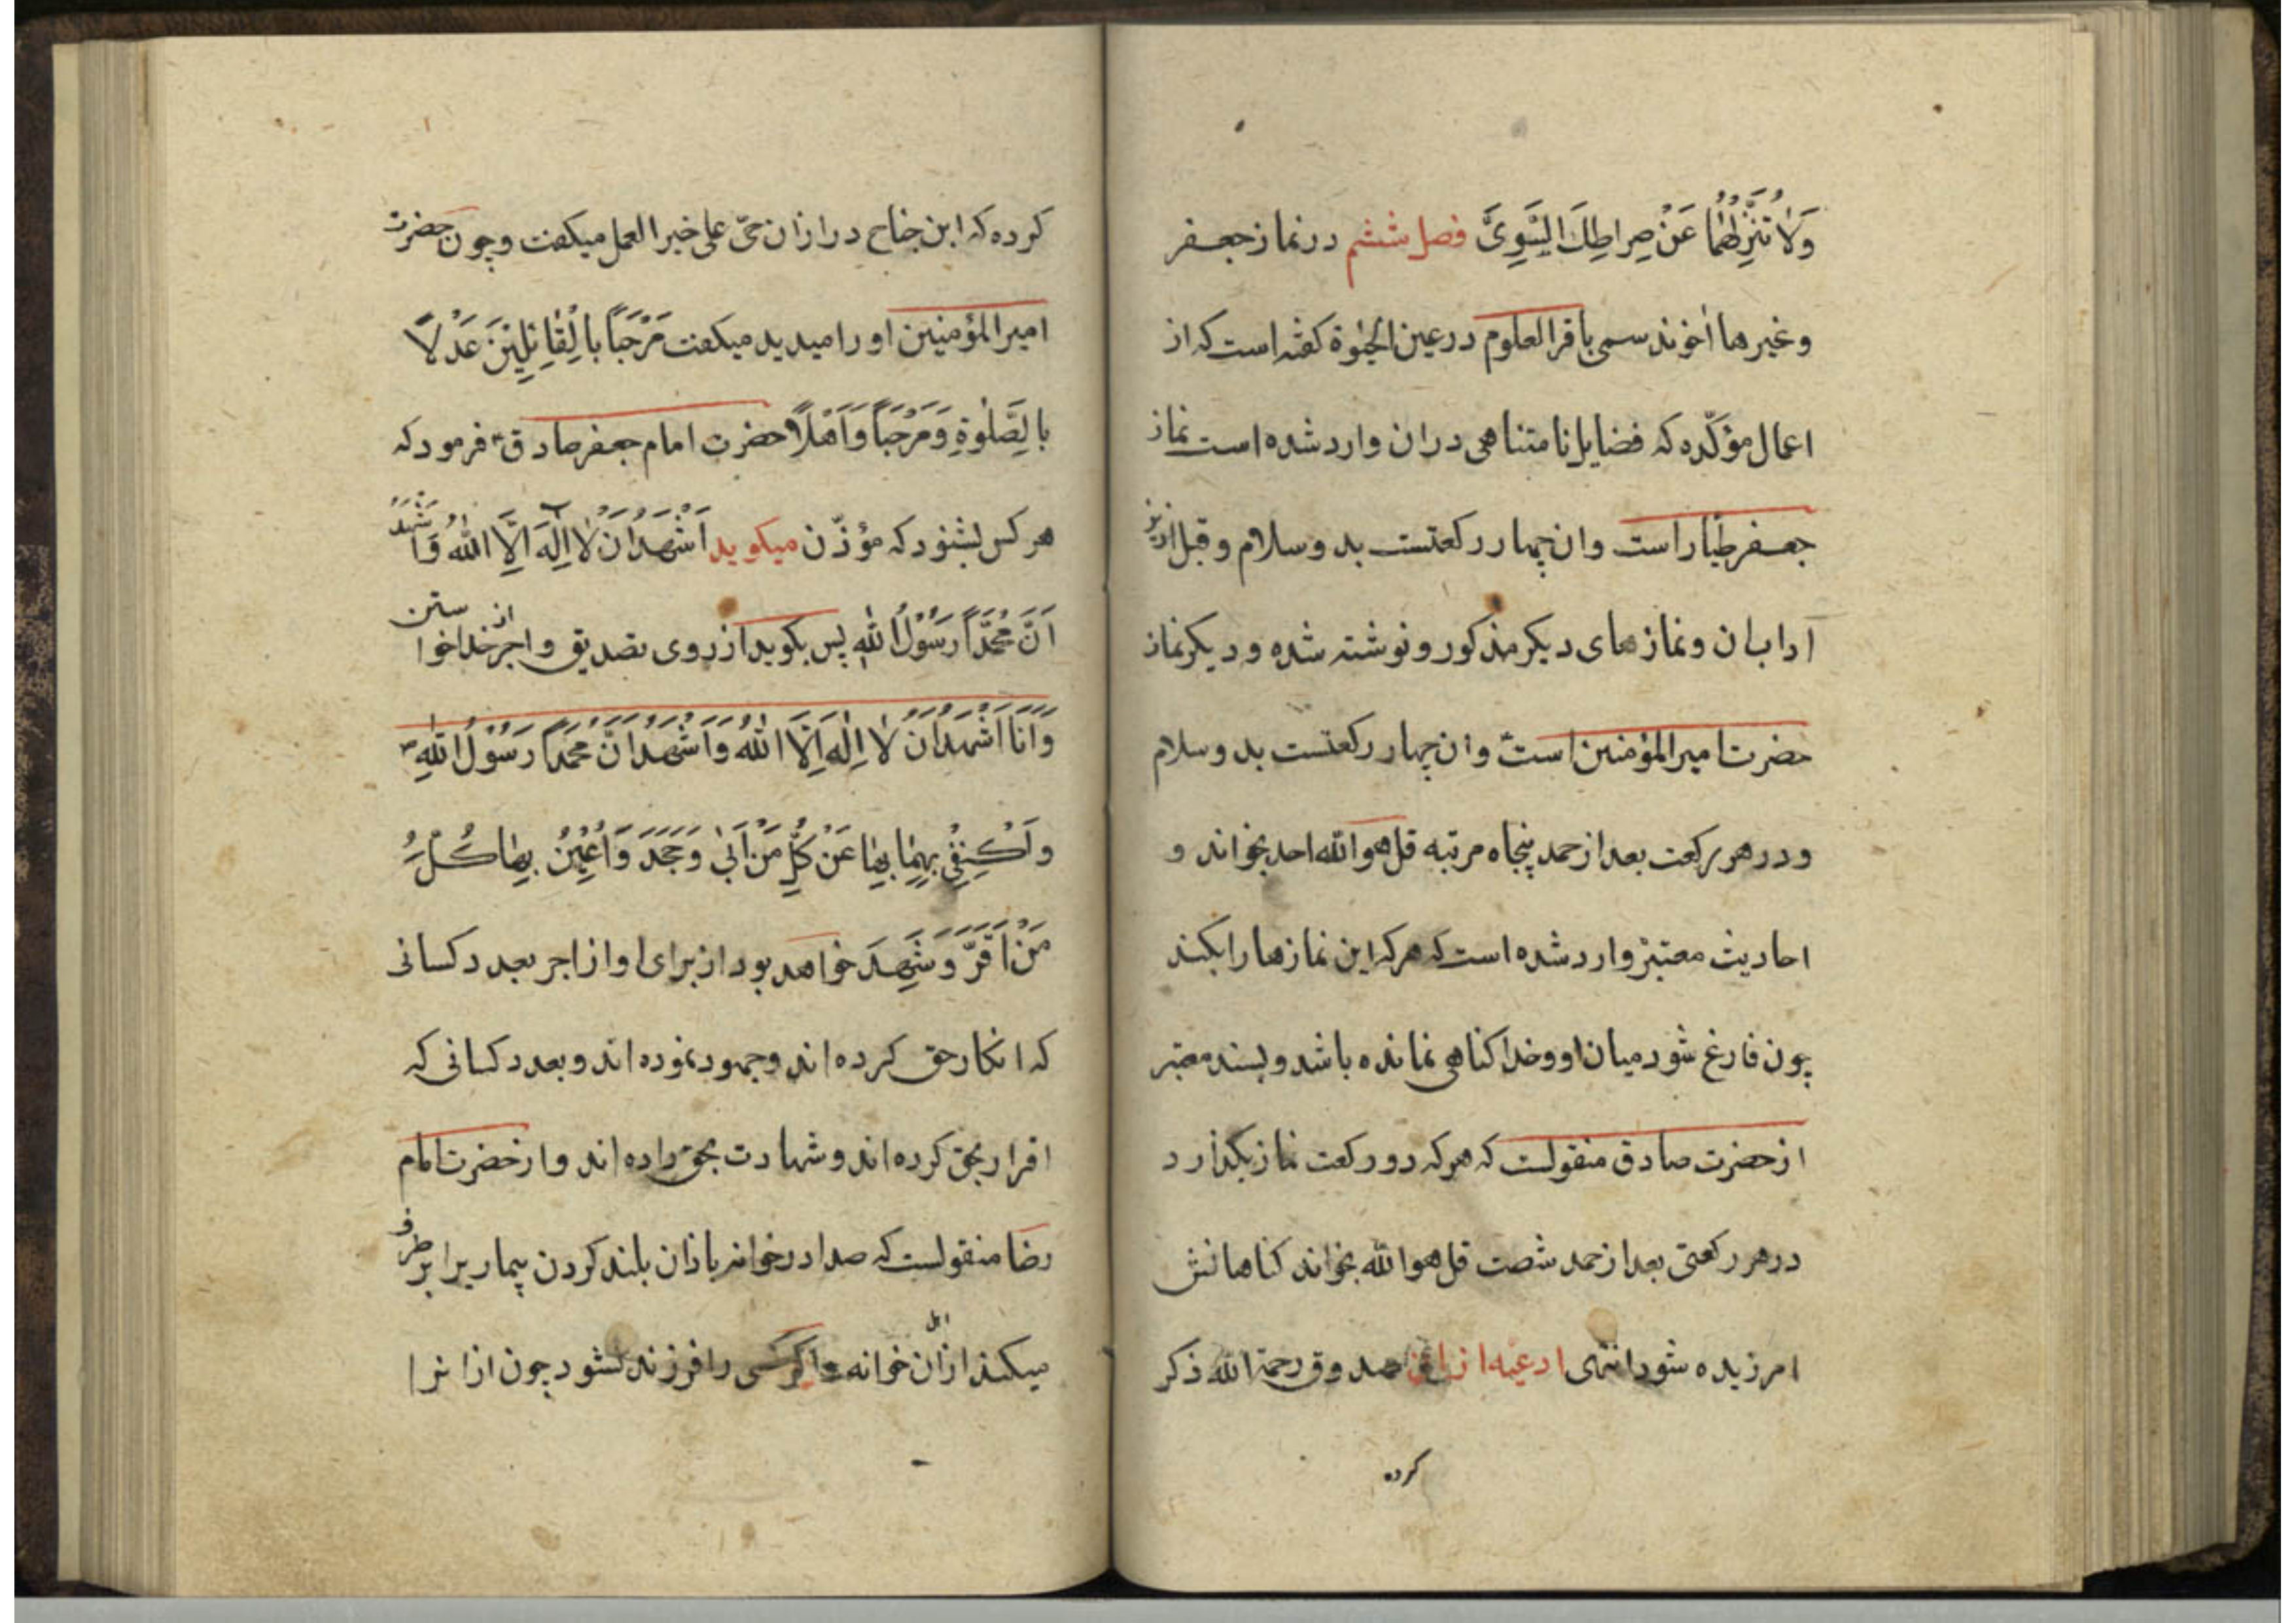 وَلَا تُنَزِّلْهُمَا عَنْ صِرَاطِكَ السَّوِيِّ فصل ششم در نماز جعفر
وغیرها اخوند سمی باقر العلوم در عین الحیوة کفته است که از
اعمال مؤکّده که فضایل نامتناهی در ان وارد شده است نماز
جعفر طیار است وان چهار رکعتست بدو سلام وقبل ازین
آداب ان ونمازهای دیکر مذکور ونوشته شده ودیکر نماز
حضرت امیر المؤمنین است وان چهار رکعتست بدو سلام
ودر هر رکعت بعد از حمد پنجاه مرتبه قل هو الله احد بخواند و
احادیث معتبر وارد شده است که هر که این نمازها را بکند
چون فارغ شود میان او وخدا کناهی نمانده باشد وبسند معتبر
از حضرت صادق منقولست که هر که دو رکعت نماز بکذارد
در هر رکعتی بعد از حمد شصت قل هو الله بخواند کناهانش
امرزیده شود انتهی ادعیه اذان صدوق رحمة الله ذکر
کرده
کرده که ابن جناح در اذان حیّ علی خیر العمل میکفت وچون حضرت
امیر المؤمنین او را میدید میکفت مَرْحَبًا بِالْقَائِلِينَ عَدْلًا
بِالصَّلٰوةِ وَمَرْحَبًا وَاَهْلًا حضرت امام جعفر صادق فرمود که
هر کس بشنود که مؤذّن میکوید اَشْهَدُ اَنْ لَا اِلٰهَ اِلَّا اللهُ وَاَشْهَدُ
اَنَّ مُحَمَّدًا رَسُوْلُ اللهِ پس بکوید از روی تصدیق واجر از خدا خواستن
وَاَنَا اَشْهَدُ اَنْ لَا اِلٰهَ اِلَّا اللهُ وَاَشْهَدُ اَنَّ مُحَمَّدًا رَسُوْلُ اللهِ
وَاَكْتَفِي بِهِمَا عَنْ كُلِّ مَنْ اَبٰى وَجَحَدَ وَاُعِيْنُ بِهِمَا كُلَّ
مَنْ اَقَرَّ وَشَهِدَ خواهد بود از برای او از اجر بعدد کسانی
که انکار حق کرده اند وجحود نموده اند وبعدد کسانی که
اقرار بحق کرده اند وشهادت بحق داده اند واز حضرت امام
رضا منقولست که صدا در خوانه باذان بلند کردن بیماری را بر طرف
میکند از اهل ان خوانه واکر کسی را فرزند نشود چون اذانرا